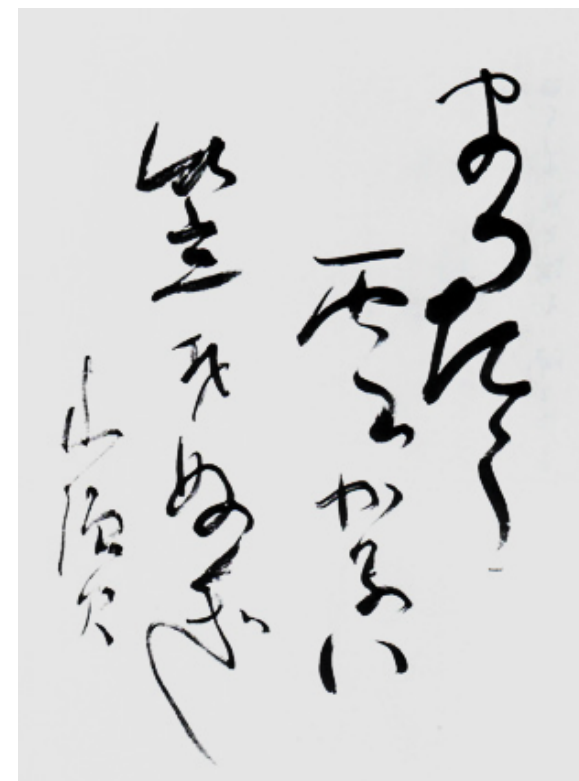 まつたく
雲がない
笠をぬぎ
山頭火